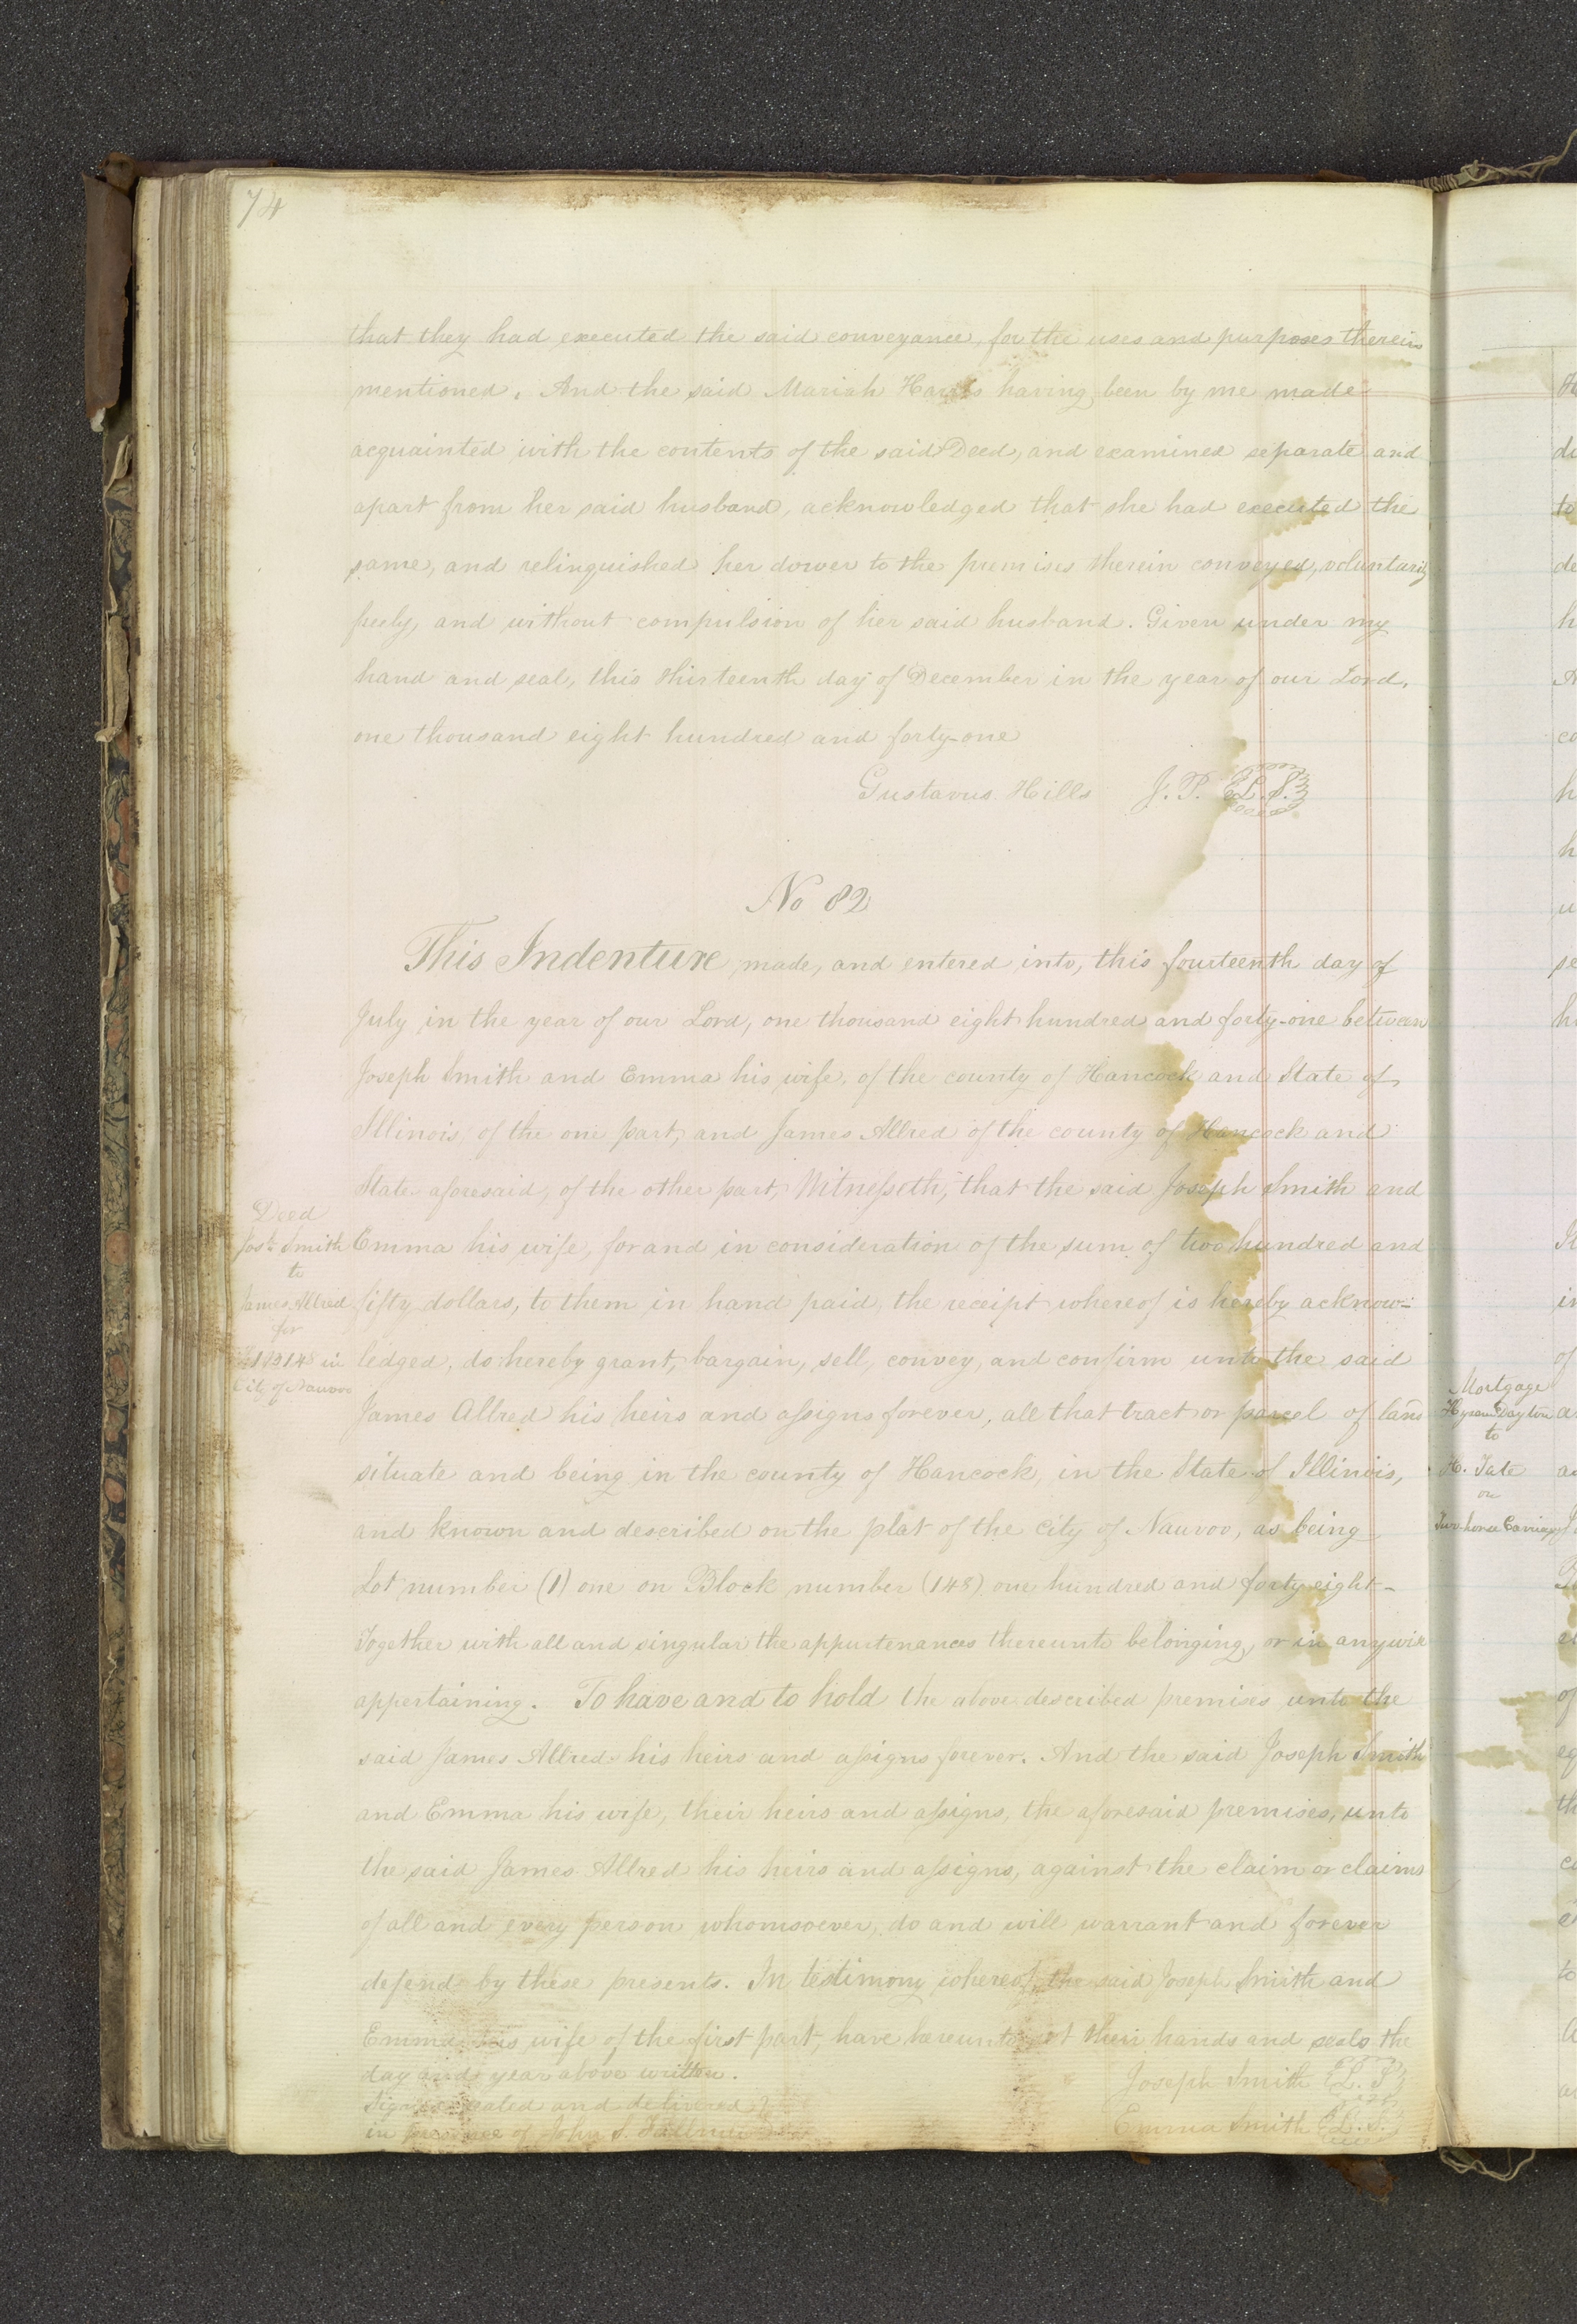 74
that they had executed the said conveyance, for the uses and purposes therein
mentioned. And the said Mariah Harris having been by me made
acquainted with the contents of the said Deed, and examined separate and
apart from her said husband, acknowledged that she had executed the
same, and relinquished her dower to the premises therein conveyed, voluntarily
freely, and without compulsion of her said husband. Given under my
hand and seal, this thirteenth day of December in the year of our Lord,
one thousand eight hundred and forty-one
Gustavus Hills J.P. L.S.
No 82
This Indenture made, and entered into, this fourteenth day of
July in the year of our Lord, one thousand eight hundred and forty-one between
Joseph Smith and Emma his wife, of the county of Hancock and State of
Illinois, of the one part, and James Allred of the county of Hancock and
State aforesaid, of the other part, Witnesseth, that the said Joseph Smith and
Emma his wife, for and in consideration of the sum of two hundred and
fifty dollars, to them in hand paid, the receipt whereof is hereby acknow-
ledged, do hereby grant, bargain, sell, convey, and confirm unto the said
James Allred his heirs and assigns forever, all that tract or parcel of land
situate and being in the county of Hancock, in the State of Illinois,
and known and described on the plat of the city of Nauvoo, as being
Lot number (1) one on Block number (148) one hundred and forty eight-
Together with all and singular the appurtenances thereunto belonging, or in anywise
appertaining. To have and to hold the above described premises unto the
said James Allred his heirs and assigns forever. And the said Joseph Smith
and Emma his wife, their heirs and assigns, the aforesaid premises, unto
the said James Allred his heirs and assigns, against the claim or claims
of all and every person whomsoever, do and will warrant and forever
defend by these presents. In testimony whereof, the said Joseph Smith and
Emma his wife of the first part, have hereunto set their hands and seals the
day and year above written.
Joseph Smith L.S.
Signed sealed and delivered
in presence of John S. Fullmer
Emma Smith L.S.
Deed
Josh. Smith
to
James Allred
for
L 1 B 148 in
City of Nauvoo
Mortgage
Hyrum Dayton
to
H. Tate
on
Two horse Carriage